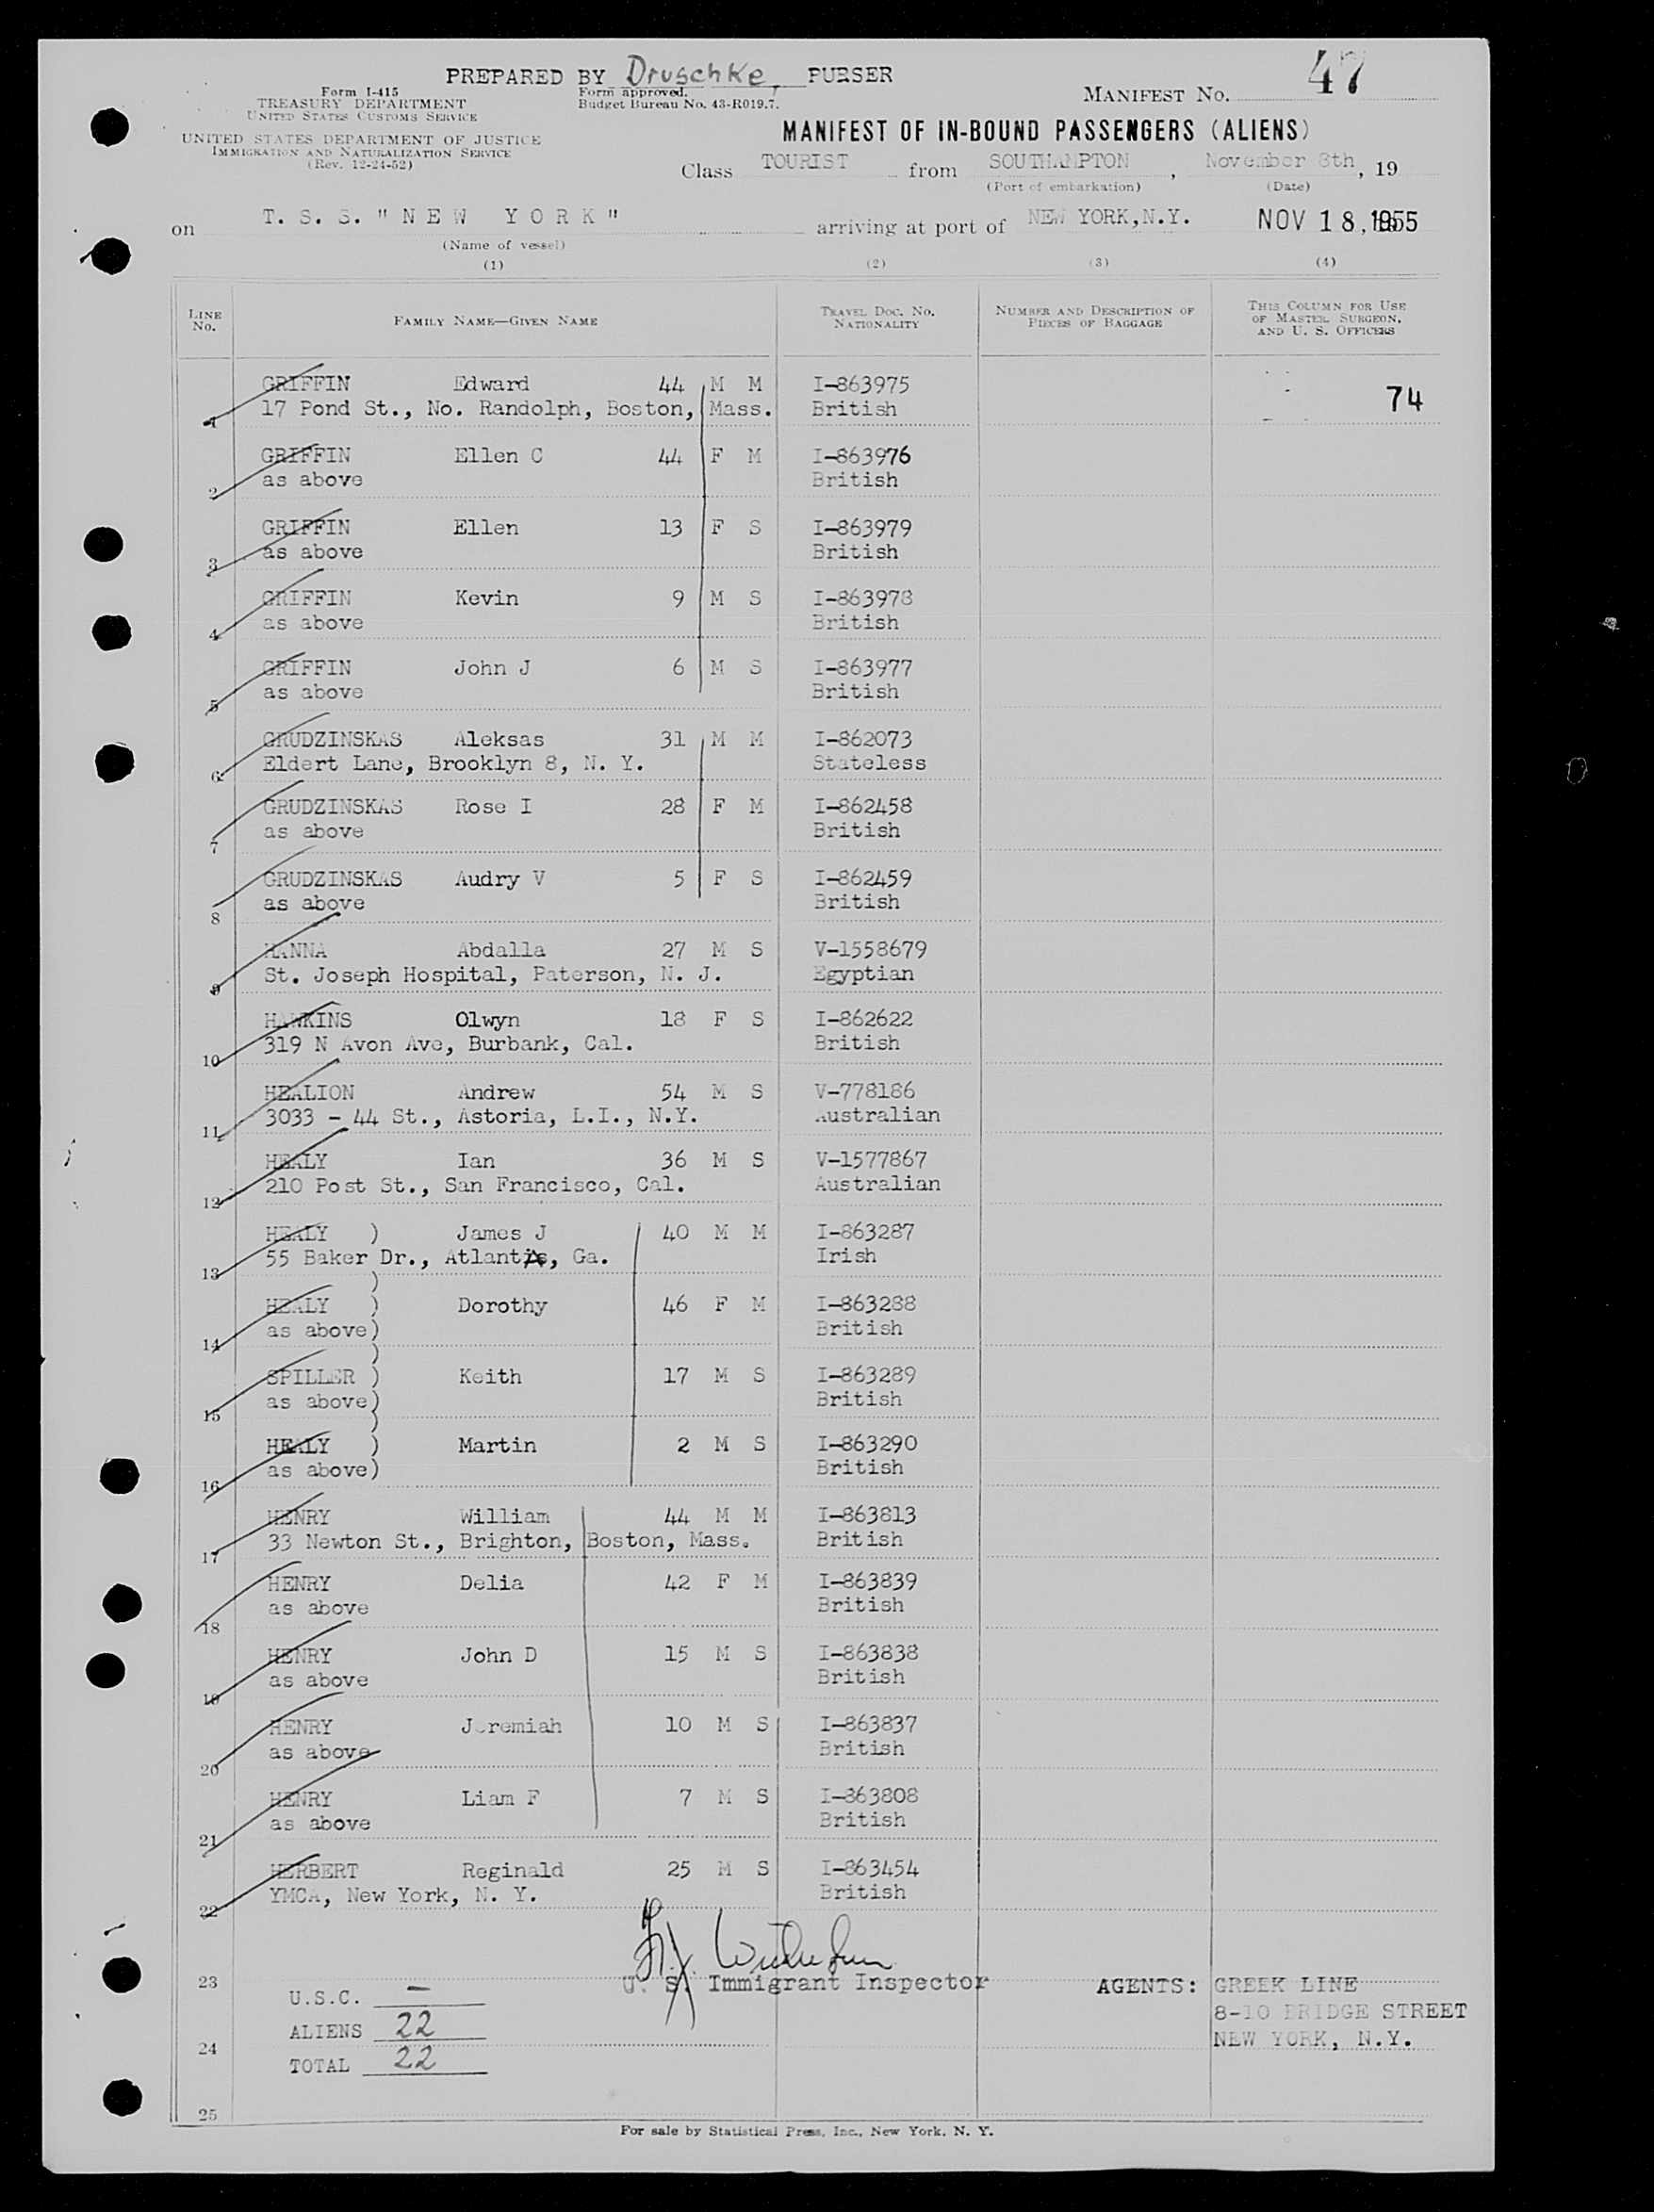 PREPARED BY Druschke, PURSER
47
Form I-415
TREASURY DEPARTMENT
UNITED STATES CUSTOMS SERVICE
Form approved.
Budget Bureau No. 43-R019.7.
MANIFEST No.
UNITED STATES DEPARTMENT OF JUSTICE
IMMIGRATION AND NATURALIZATION SERVICE
(Rev. 12-24-52)
MANIFEST OF IN-BOUND PASSENGERS (ALIENS)
Class TOURIST from SOUTHAMPTON, November 8th, 19
(Port of embarkation) (Date)
on T. S. S. "NEW YORK" arriving at port of NEW YORK, N.Y. NOV 18, 1955
(Name of vessel)
(1) (2) (3) (4)
LINE No. FAMILY NAME—GIVEN NAME TRAVEL DOC. No. NATIONALITY NUMBER AND DESCRIPTION OF PIECES OF BAGGAGE THIS COLUMN FOR USE OF MASTER, SURGEON, AND U. S. OFFICERS
GRIFFIN Edward 44 M M I-863975 74
1 17 Pond St., No. Randolph, Boston, Mass. British
GRIFFIN Ellen C 44 F M I-863976
2 as above British
GRIFFIN Ellen 13 F S I-863979
3 as above British
GRIFFIN Kevin 9 M S I-863978
4 as above British
GRIFFIN John J 6 M S I-863977
5 as above British
GRUDZINSKAS Aleksas 31 M M I-862073
6 Eldert Lane, Brooklyn 8, N. Y. Stateless
GRUDZINSKAS Rose I 28 F M I-862458
7 as above British
GRUDZINSKAS Audry V 5 F S I-862459
8 as above British
HANNA Abdalla 27 M S V-1558679
9 St. Joseph Hospital, Paterson, N. J. Egyptian
HAWKINS Olwyn 18 F S I-862622
10 319 N Avon Ave, Burbank, Cal. British
HEALION Andrew 54 M S V-778186
11 3033 - 44 St., Astoria, L.I., N.Y. Australian
HEALY Ian 36 M S V-1577867
12 210 Post St., San Francisco, Cal. Australian
HEALY ) James J 40 M M I-863287
13 55 Baker Dr., Atlanta, Ga. Irish
HEALY ) Dorothy 46 F M I-863288
14 as above) British
SPILLER ) Keith 17 M S I-863289
15 as above) British
HEALY ) Martin 2 M S I-863290
16 as above) British
HENRY William 44 M M I-863813
17 33 Newton St., Brighton, Boston, Mass. British
HENRY Delia 42 F M I-863839
18 as above British
HENRY John D 15 M S I-863838
19 as above British
HENRY Jeremiah 10 M S I-863837
20 as above British
HENRY Liam F 7 M S I-863808
21 as above British
HERBERT Reginald 25 M S I-863454
22 YMCA, New York, N. Y. British
23 U. S. Immigrant Inspector AGENTS: GREEK LINE
U.S.C. —
8-10 BRIDGE STREET
ALIENS 22
24 NEW YORK, N.Y.
TOTAL 22
25
For sale by Statistical Press, Inc., New York, N. Y.